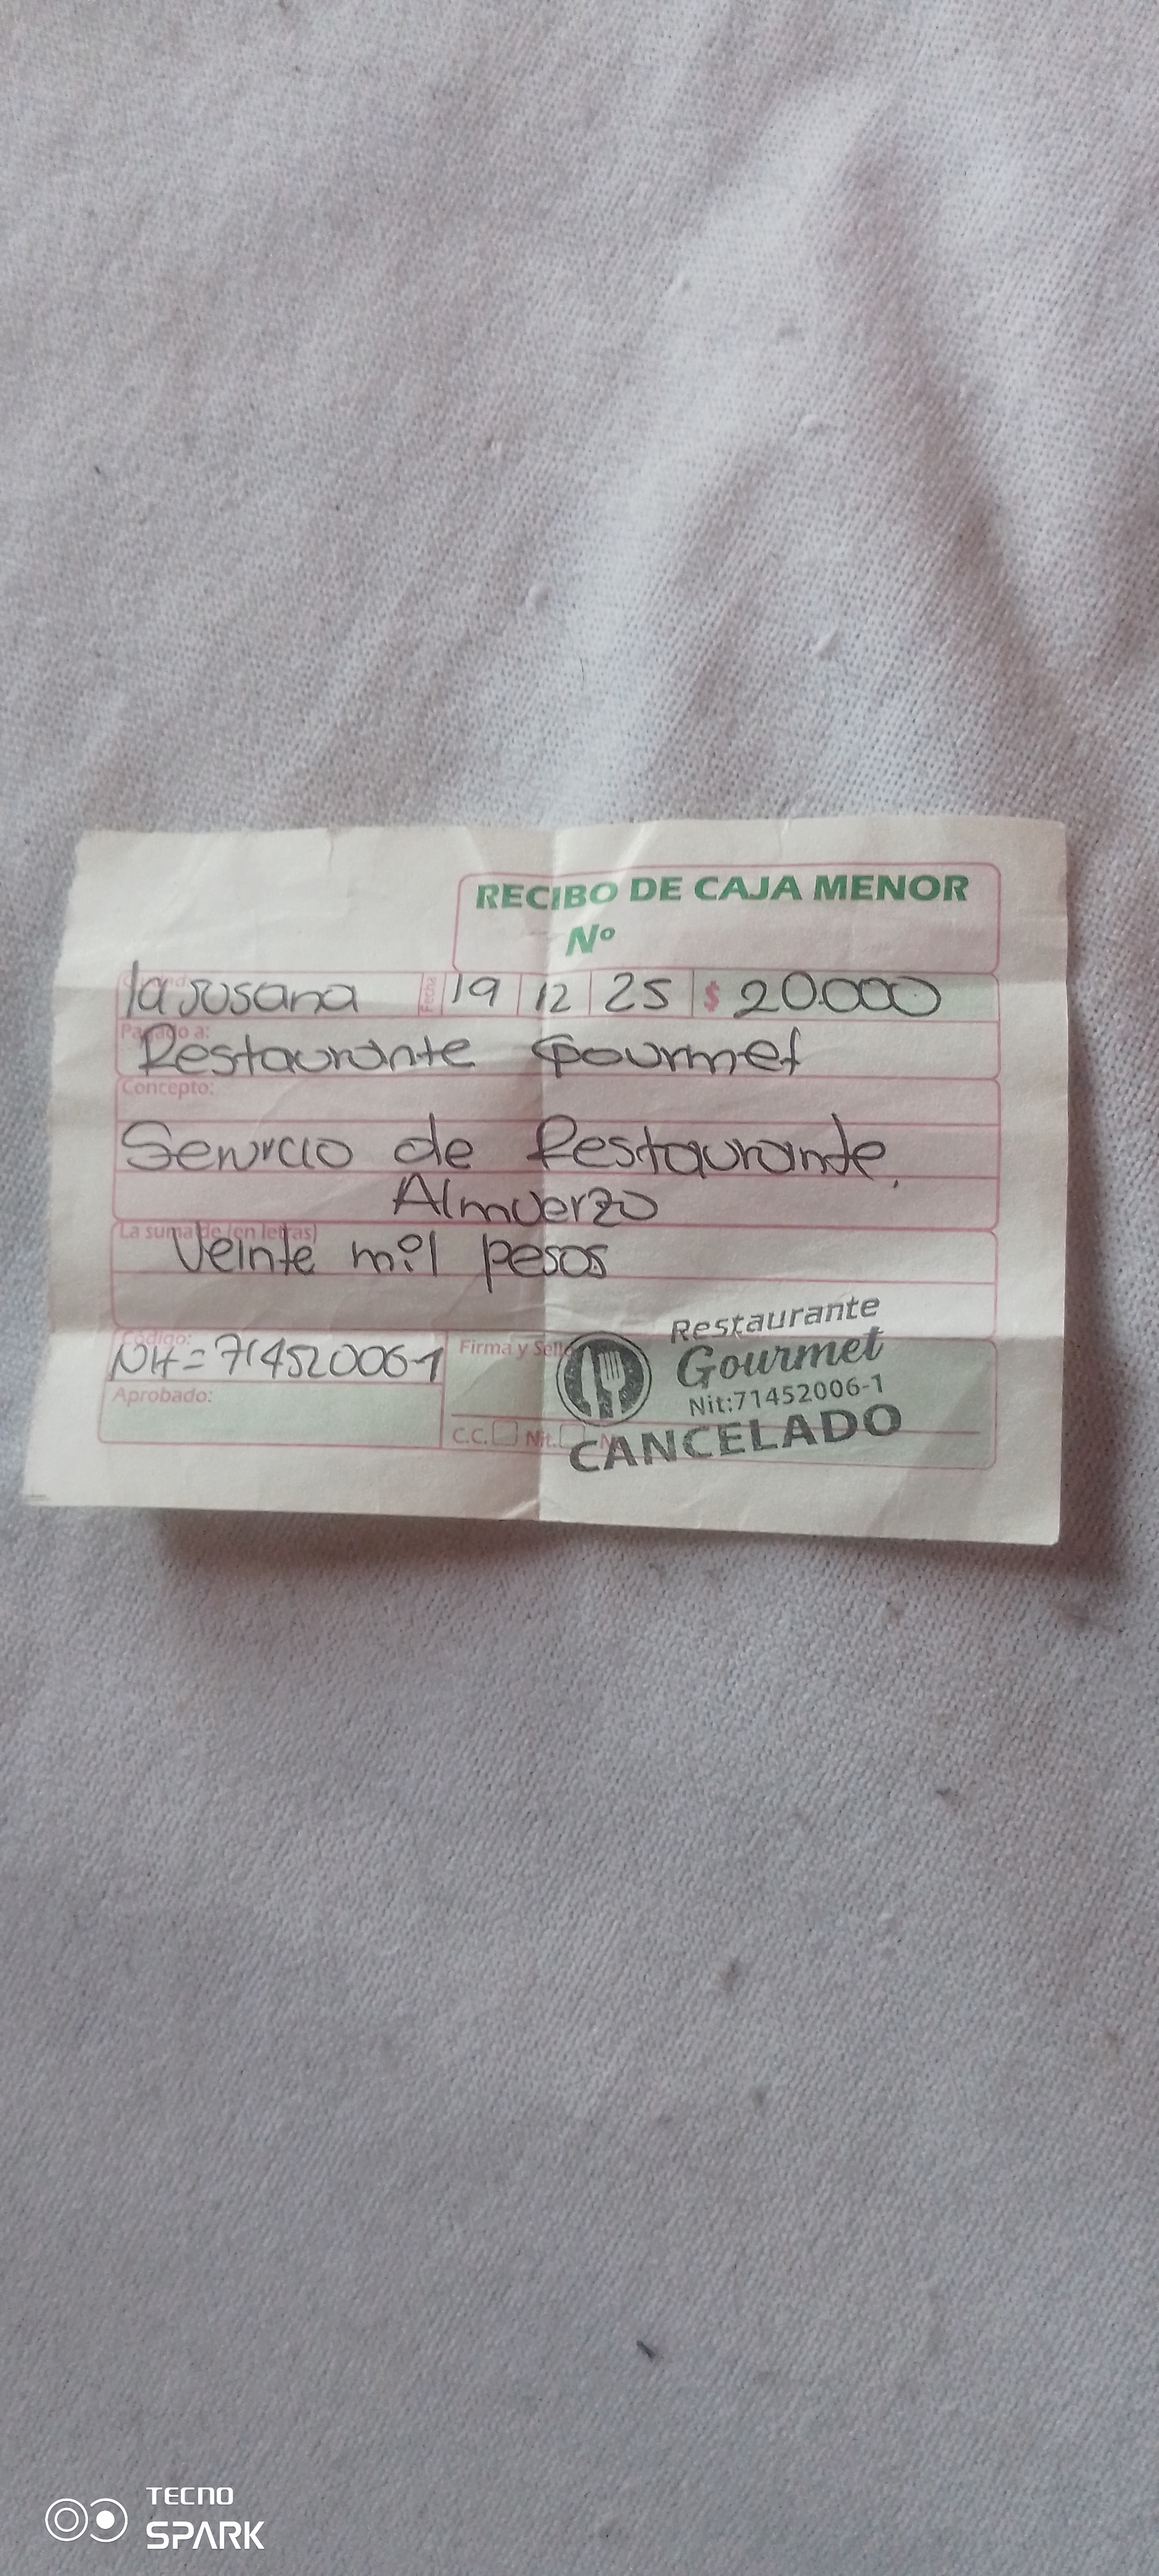 RECIBO DE CAJA MENOR
Nº
la susana Fecha 19 12 25 $ 20.000
Pagado a:
Restaurante Gourmet
Concepto:
Servicio de Restaurante.
Almuerzo
La suma de (en letras)
Veinte mil pesos
Código:
Nit = 71452006-1
Firma y Sello
Aprobado:
C.C. Nit.
Restaurante
Gourmet
Nit:71452006-1
CANCELADO
TECNO
SPARK